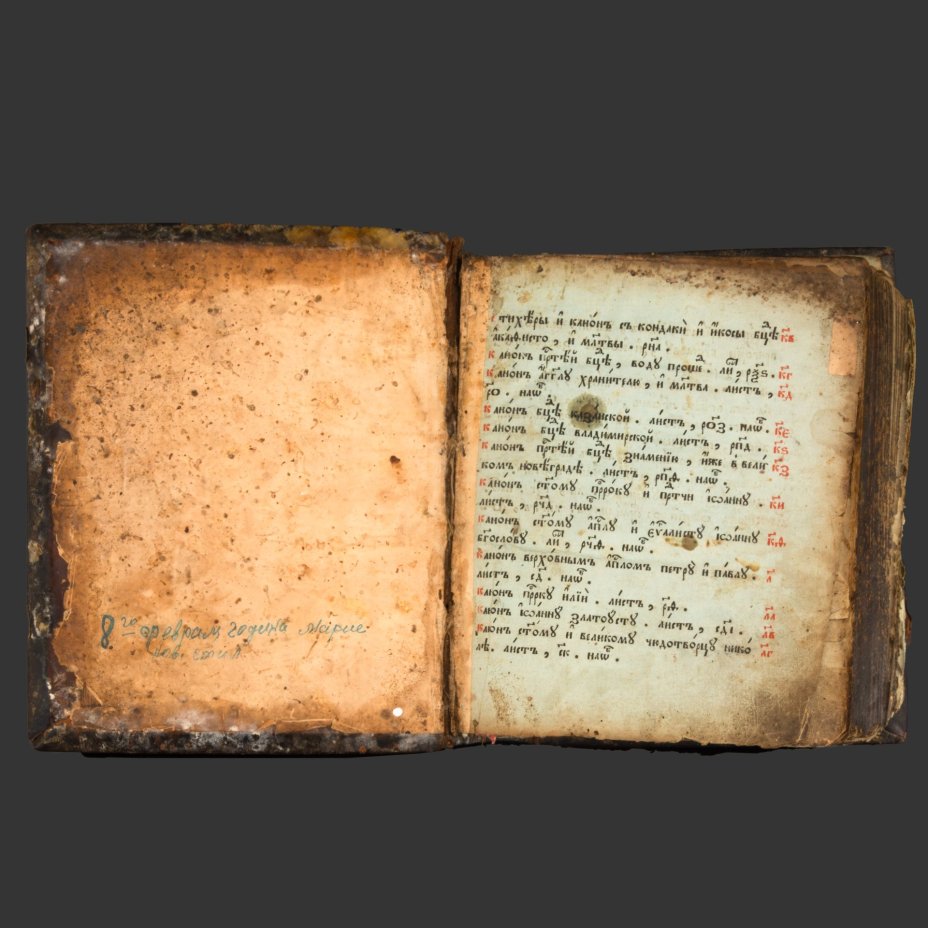 8го февраля година Марие
нов. стил.
Стихѣ́ры и҆ кано́нъ съ кондаки̑ и҆ и҆́косы бц҃ѣ к҃в
а҆ка́ѳисто, и҆ мл҃твы. рн҃а.
Кано́нъ прⷭ҇тѣ́й бц҃ѣ, воду проше. ли, рѯ҃ѕ. к҃г
Кано́нъ а҆́гг҃лу храни́телю, и҆ мл҃тва. ли́стъ, к҃д
ро҃, наѡ҃т.
Кано́нъ бц҃ѣ каза́нской. ли́стъ, ро҃з. наѡ҃т. к҃е
Кано́нъ бц҃ѣ влади́мирской. ли́стъ, рп҃д. к҃ѕ
Кано́нъ прⷭ҇тѣ́й бц҃ѣ Зна́менїю, и҆́же в̾ вели́ к҃з
комъ новѣ́градѣ. ли́стъ, рп҃ѳ. наѡ҃т.
Кано́нъ ст҃о́му прⷪ҇ро́ку и҆ прⷣтчи і҆ѡа́нну. к҃и
ли́стъ, рч҃д. наѡ҃т.
Кано́нъ ст҃о́му а҆пⷭ҇лу и҆ є҆ѵⷢ҇али́сту і҆ѡа́нну к҃ѳ
бг҃осло́ву. ли, рч҃ѳ. наѡ҃т.
Кано́нъ верхо́внымъ а҆пⷭ҇ломъ петру̀ и҆ па́влу. л҃
ли́стъ, с҃д. наѡ҃т.
Кано́нъ прⷪ҇рку и҆лїи̂. ли́стъ, с҃ѳ. л҃а
Кано́нъ і҆ѡа́нну Златоу́сту. ли́стъ, сд҃і. л҃в
Кано́нъ ст҃о́му и҆ вели́кому чюдотво́рцу нико́ л҃г
лѣ. ли́стъ, с҃к. наѡ҃т.